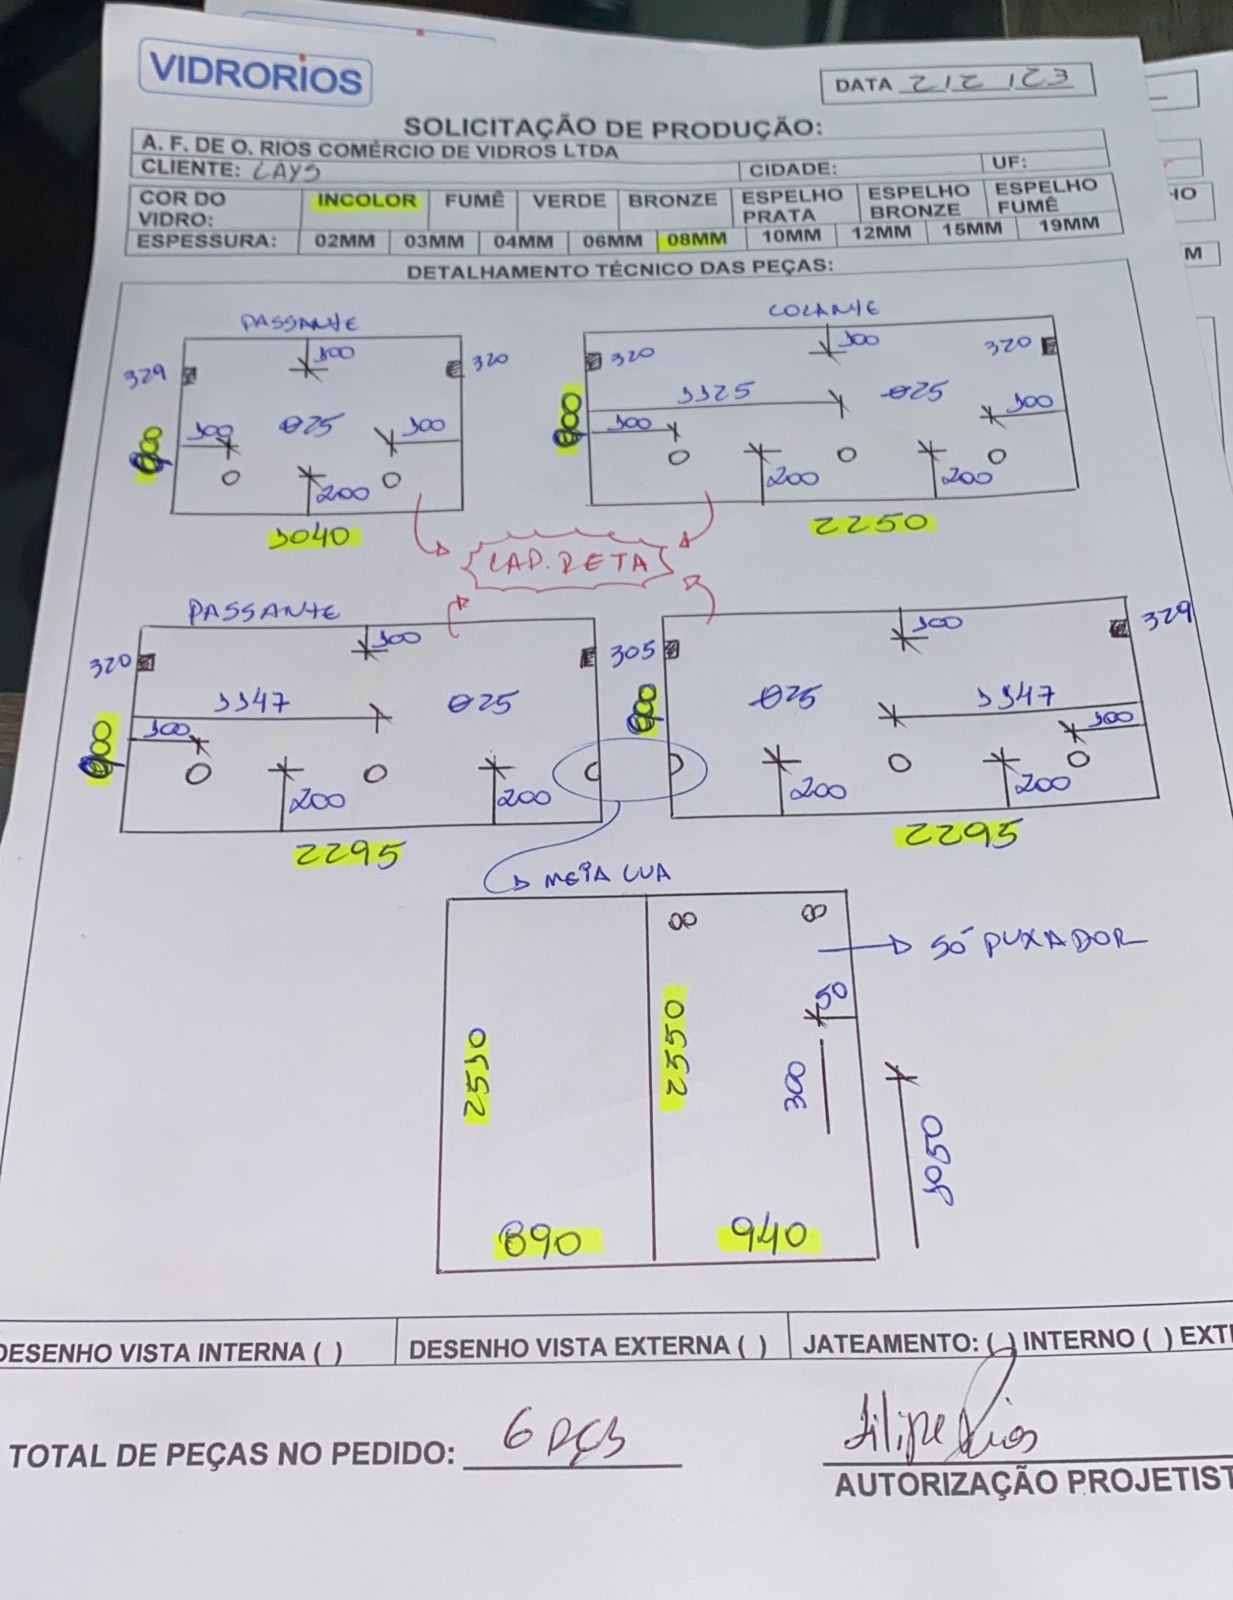 VIDRORIOS
DATA 2/2/23
SOLICITAÇÃO DE PRODUÇÃO:
A. F. DE O. RIOS COMÉRCIO DE VIDROS LTDA
CLIENTE: LAYS CIDADE: UF:
COR DO VIDRO: INCOLOR FUMÊ VERDE BRONZE ESPELHO PRATA ESPELHO BRONZE ESPELHO FUMÊ
ESPESSURA: 02MM 03MM 04MM 06MM 08MM 10MM 12MM 15MM 19MM
DETALHAMENTO TÉCNICO DAS PEÇAS:
PASSANTE
329 100 320
100 Ø25 100
200
1040
COLANTE
320 100 320
1125 Ø25
100 100
200 200
2250
LAP. RETA
PASSANTE
320 100 305
1147 Ø25
100
200 200
2295
100 329
Ø25 1147
100
200 200
2295
MEIA LUA
SÓ PUXADOR
50
2530 2550 300
1050
890 940
DESENHO VISTA INTERNA ( ) DESENHO VISTA EXTERNA ( ) JATEAMENTO: ( ) INTERNO ( ) EXT
TOTAL DE PEÇAS NO PEDIDO: 6 PÇS
Filipe Rios
AUTORIZAÇÃO PROJETIST
HO
M